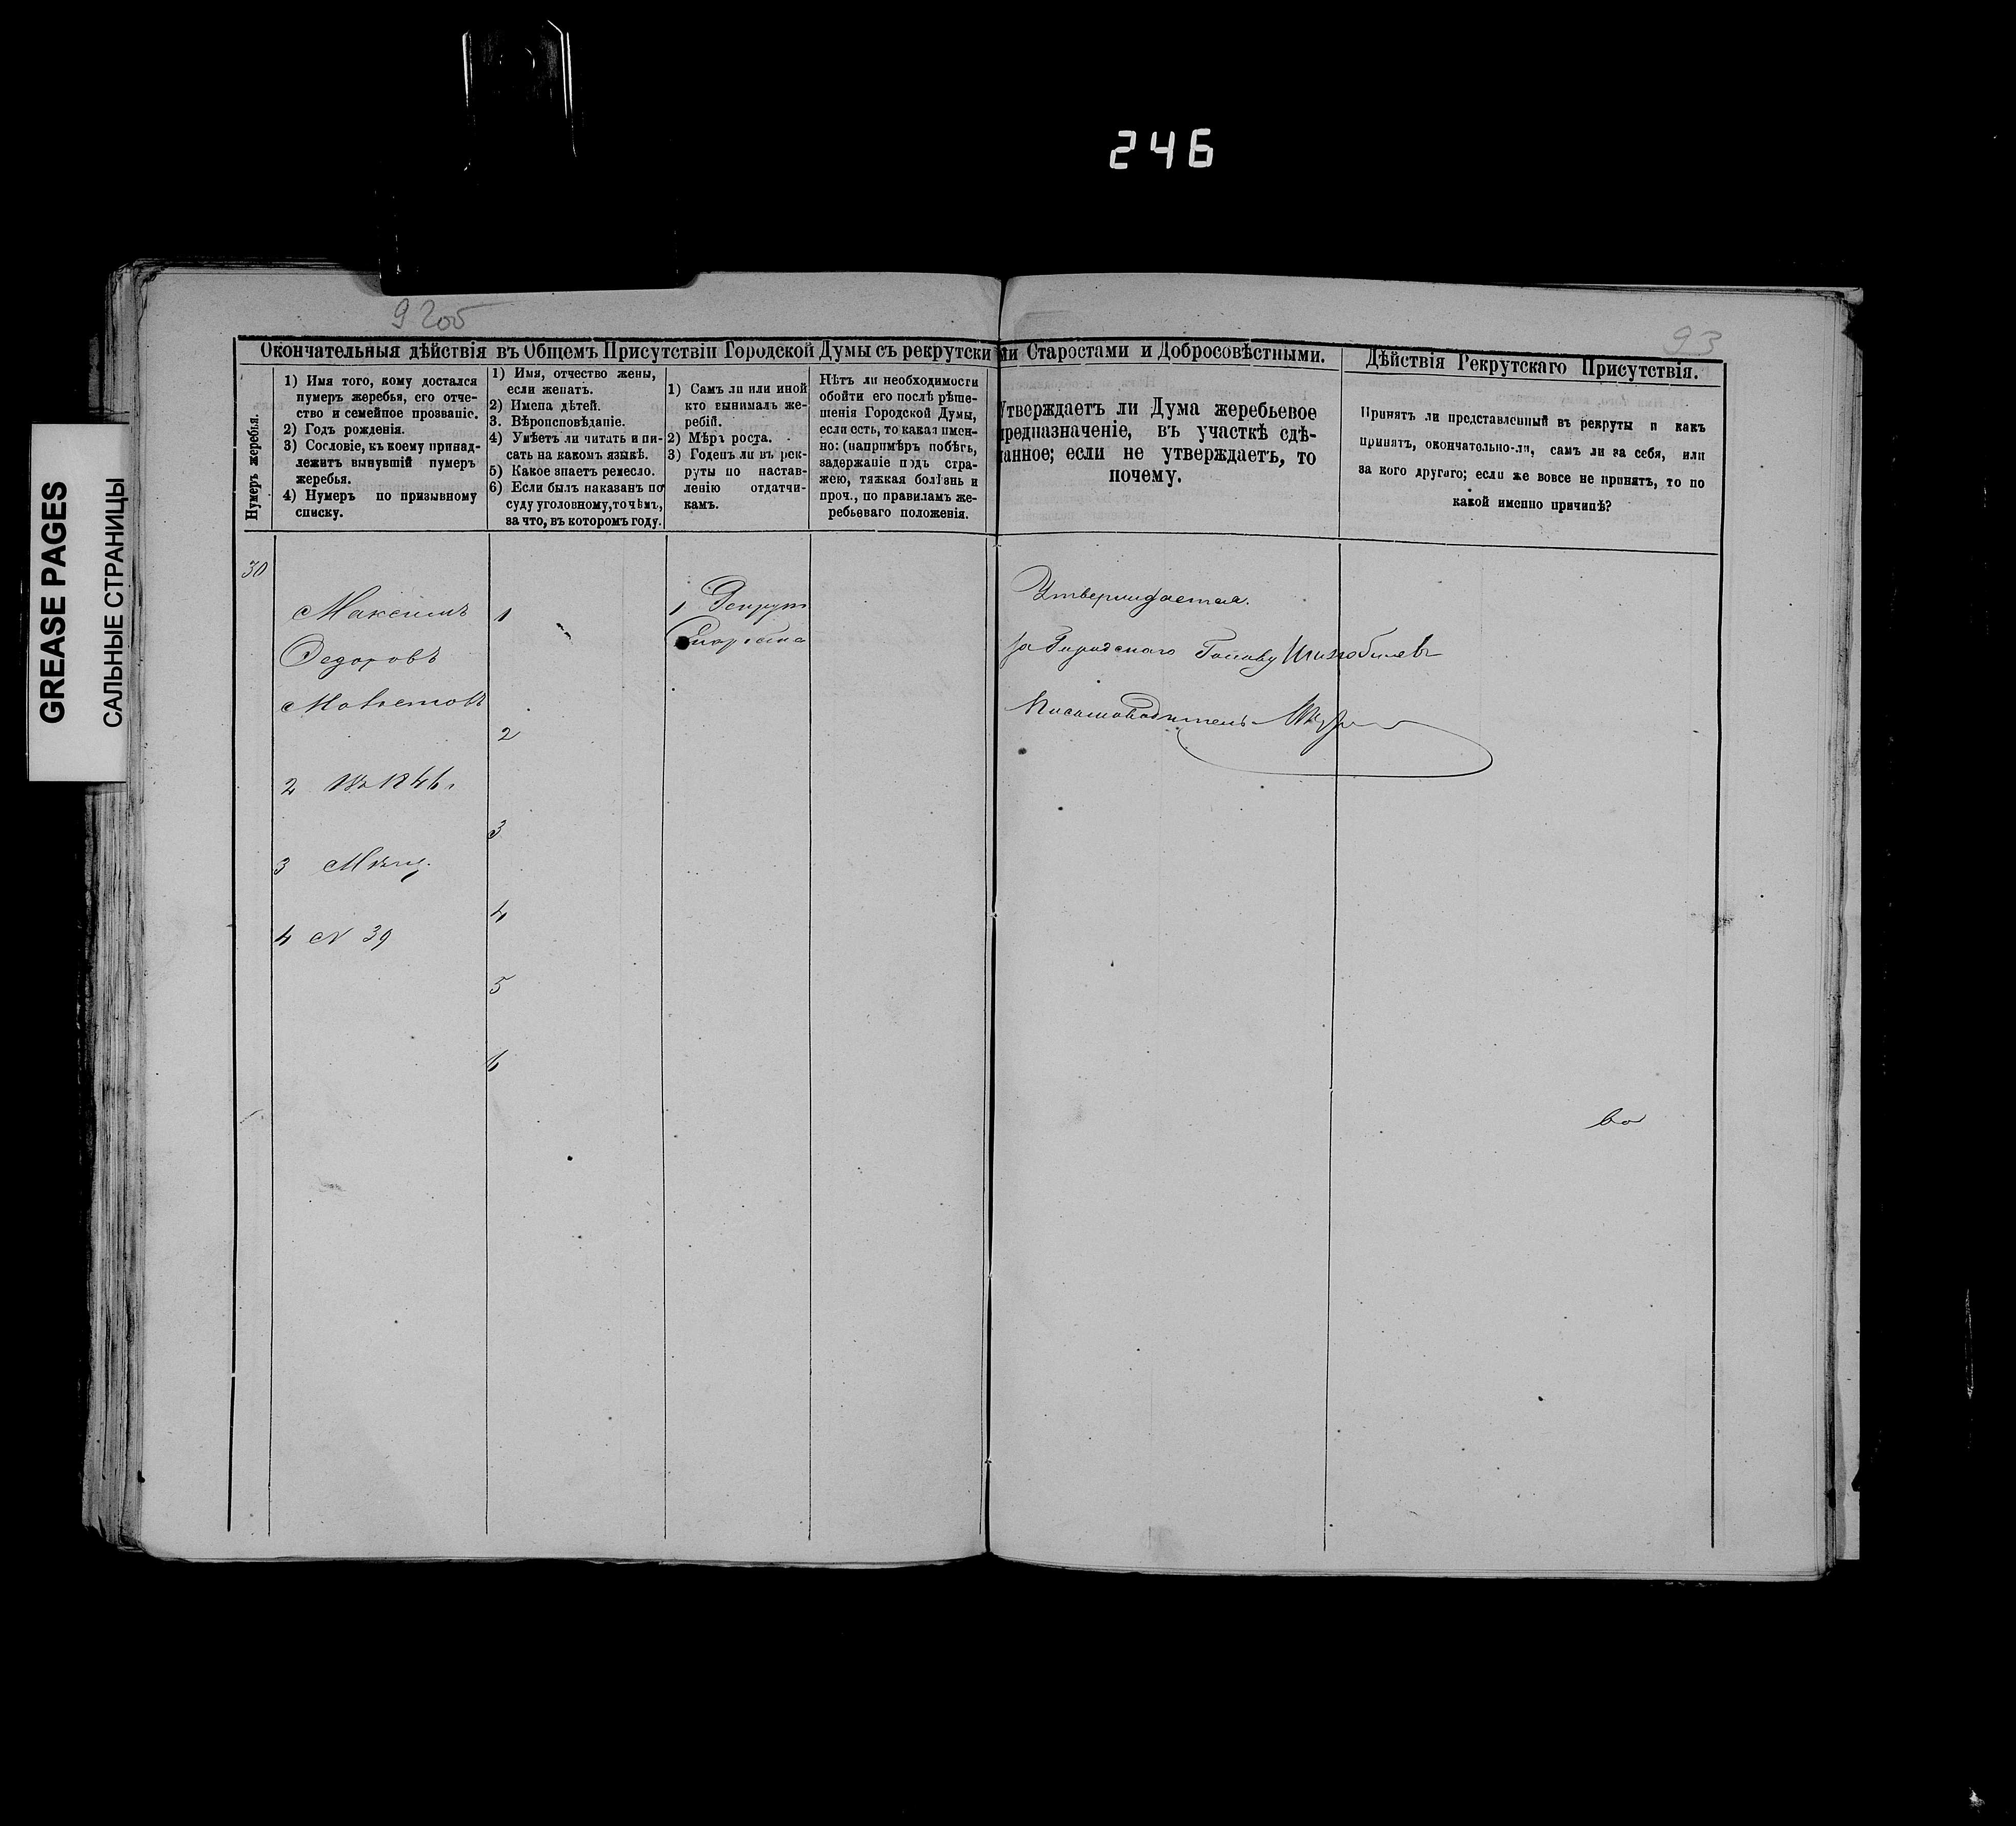 246
92 об
93
GREASE PAGES
САЛЬНЫЕ СТРАНИЦЫ
Окончательныя дѣйствія въ Общемъ Присутствіи Городской Думы съ рекрутскими Старостами и Добросовѣстными.
Дѣйствія Рекрутскаго Присутствія.
Нумеръ жеребья.
1) Имя того, кому достался
нумеръ жеребья, его отче-
ство и семейное прозваніе.
2) Годъ рожденія.
3) Сословіе, къ коему принад-
лежитъ вынувшій нумеръ
жеребья.
4) Нумеръ по призывному
списку.
1) Имя, отчество жены,
если женатъ.
2) Имена дѣтей.
3. Вѣроисповѣданіе.
4) Умѣетъ ли читать и пи-
сать на какомъ языкѣ.
5) Какое знаетъ ремесло.
6) Если былъ наказанъ по
суду уголовному, то чѣмъ,
за что, въ которомъ году.
1) Самъ ли или иной
кто вынималъ же-
ребій.
2) Мѣра роста.
3) Годенъ ли въ рек-
руты по настав-
ленію отдатчи-
камъ.
Нѣтъ ли необходимости
обойти его послѣ рѣше-
шенія Городской Думы,
если есть, то какая имен-
но: (напримѣръ побѣгъ,
задержаніе подъ стра-
жею, тяжкая болѣзнь и
проч., по правиламъ же-
ребьеваго положенія.
Утверждаетъ ли Дума жеребьевое
предназначеніе, въ участкѣ сдѣ-
ланное; если не утверждаетъ, то
почему.
Принятъ ли представленный въ рекруты и какъ
принятъ, окончательно-ли, самъ ли за себя, или
за кого другаго; если же вовсе не принятъ, то по
какой именно причинѣ?
30
Максимъ
Федоровъ
2 Въ 1846.
3 Мѣщ.
4 N 39
1
2
3
4
5
6
1 Рекрут
Староста
Утверждается.
за Городскаго Голову
Письмоводитель
во